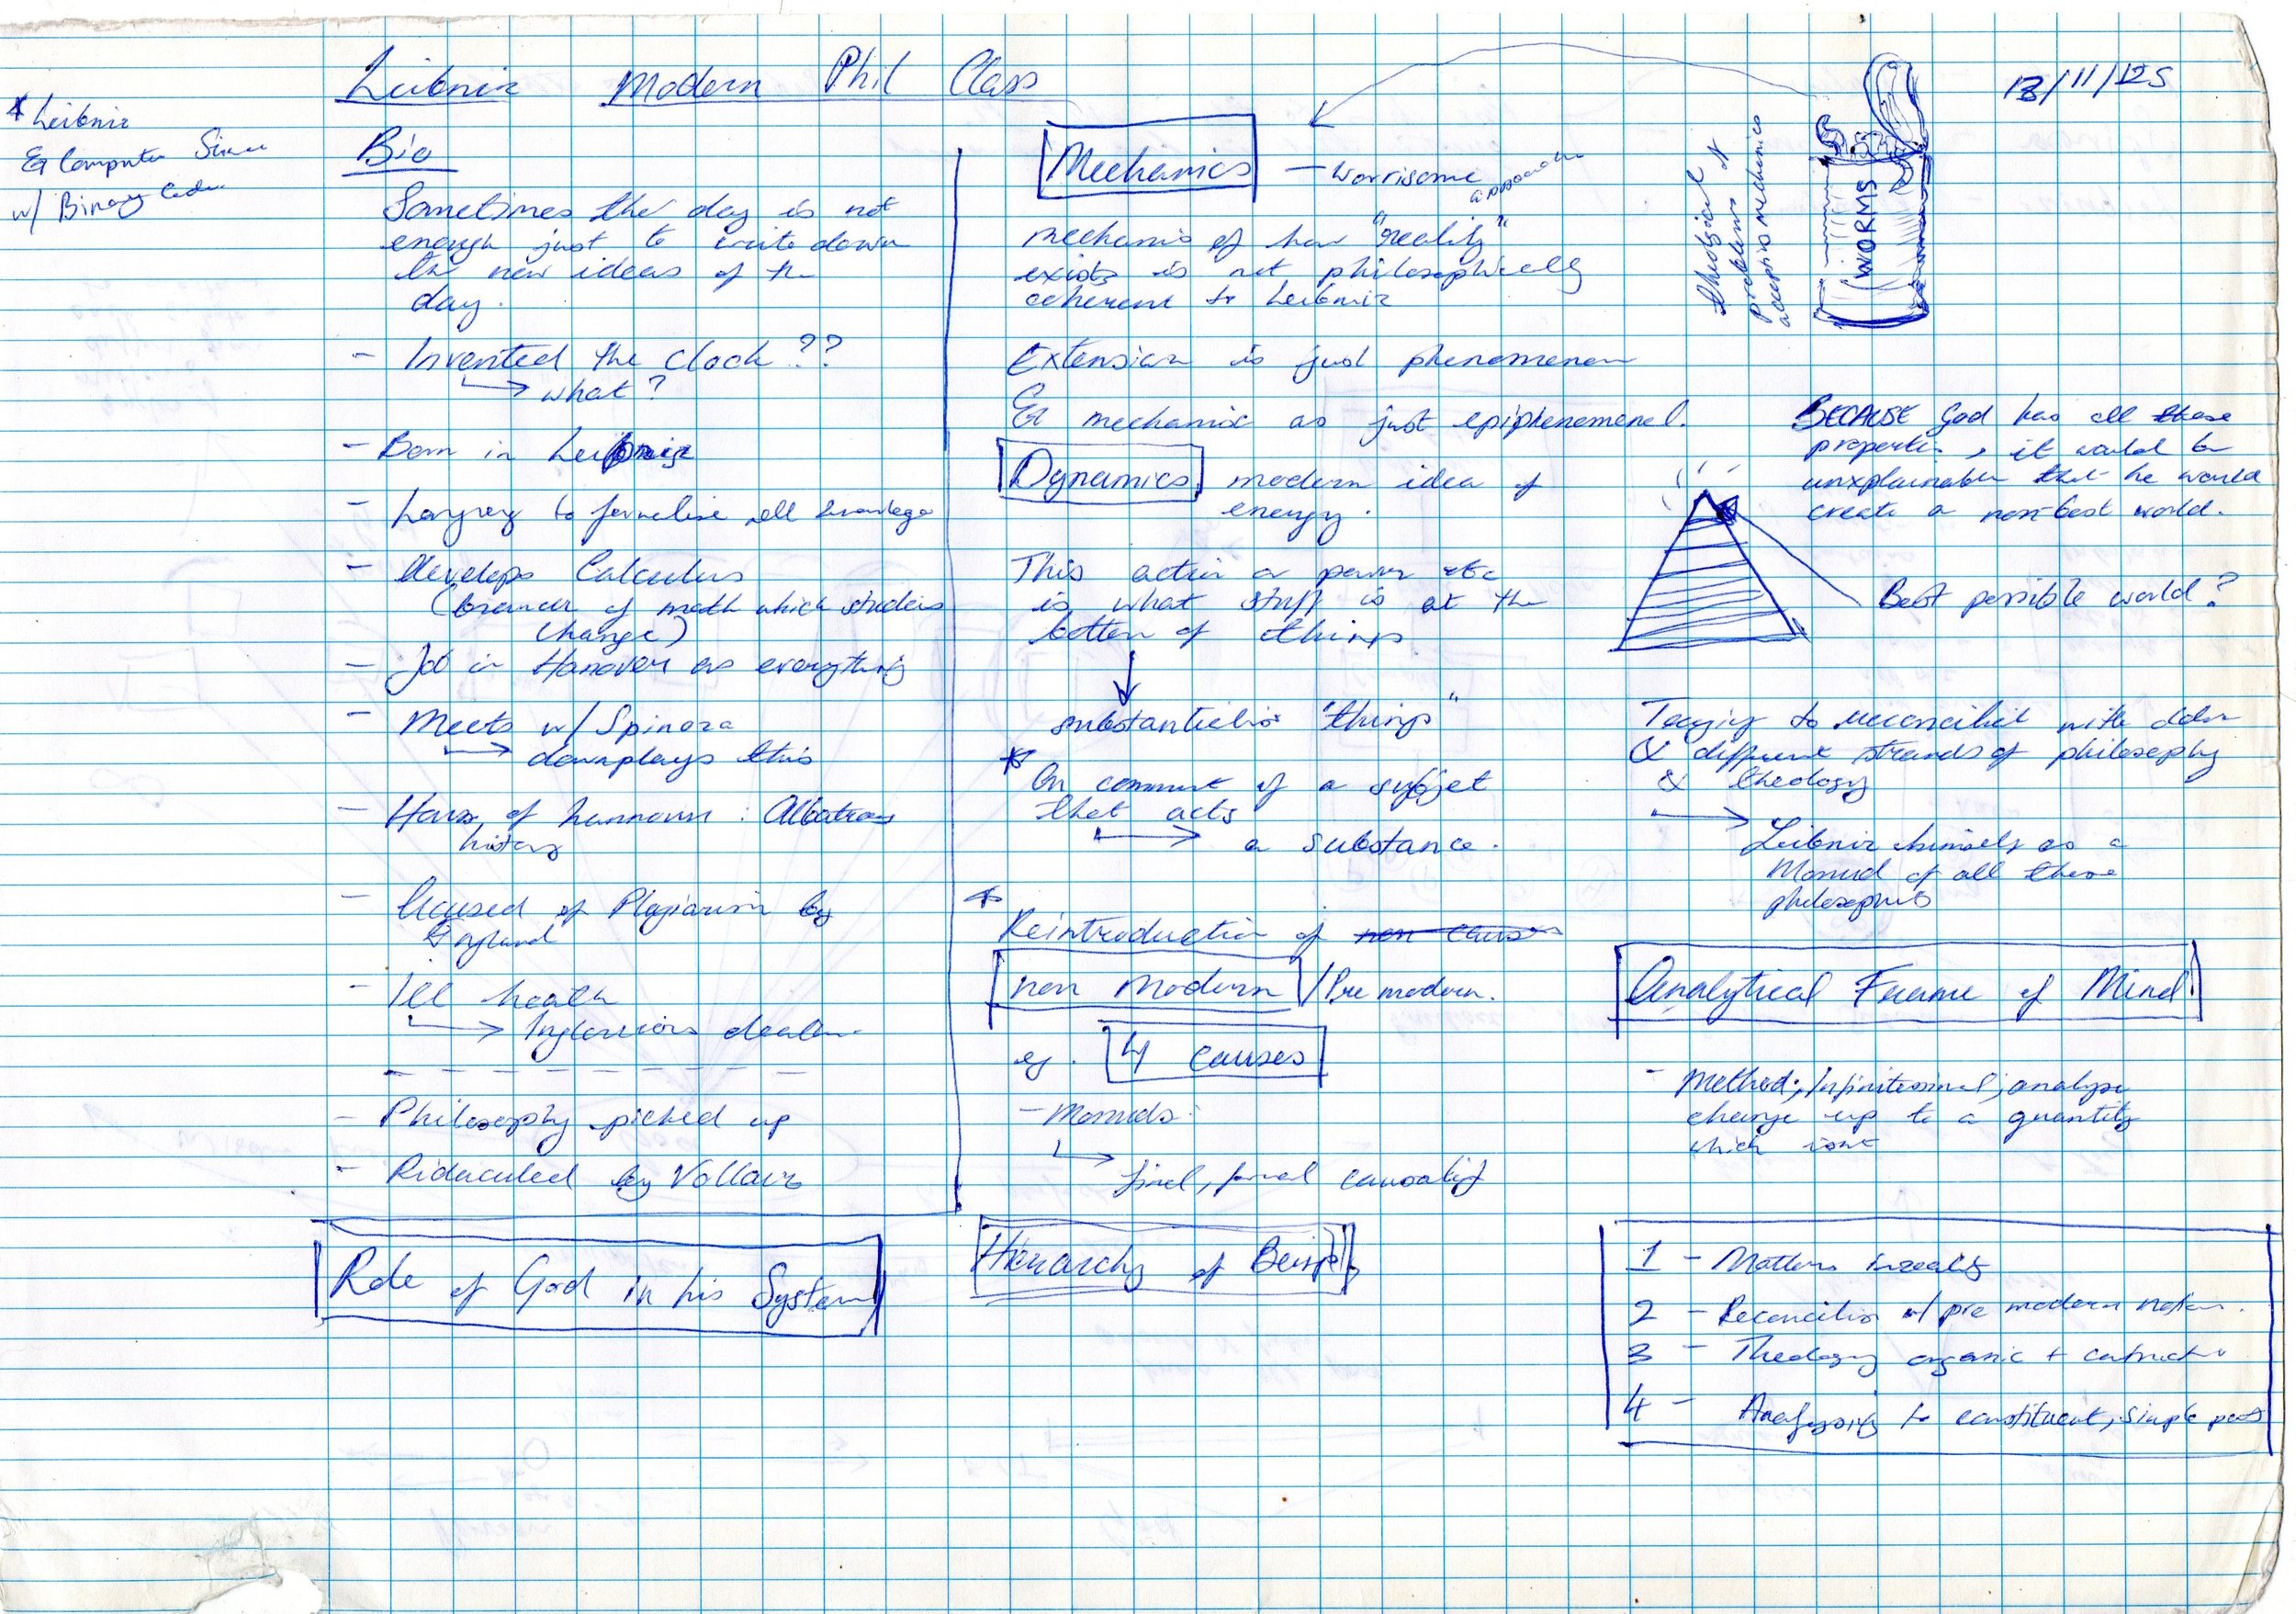 Leibniz Modern Phil Class
13/11/25
* Leibniz
& Computer Since
w/ Binary Code
Bio
Sometimes the day is not
enough just to write down
the new ideas of the
day.
- Invented the clock ??
what?
- Born in Leibnig
- to formelise all knowlege
- Develops Calculus
(brance of math which studeis
change)
- Job in Hanover as everything
- Meets w/ Spinoza
downplays this
- Hous of hannover :
history
- Acused of Plagiarism by
England
- Ill health
Inglorious death
- Philosophy picked up
- Ridaculed by Voltair
Role of God in his System
Mechanics - worrisome
approach
mechanis of how "reality"
exists is not philosophically
coherent to Leibniz
Extension is just phenomenon
& mechanic as just epiphenomenal.
Dynamics modern idea of
energy.
This action or power etc
is what stuff is at the
bottom of things
"things"
* of a subjet
that acts
a substance.
*
Reintroduction of non causes
non modern / Pre modern.
eg. 4 causes
- Monads:
final, formal causality
Hierarchy of Beings
theological
problems of
accepting mechanics
WORMS
BECAUSE God has all these
properties, it would be
unxplainable that he would
create a non-best world.
Best possible world?
Trying to reconcilie with older
& different strands of philosophy
& theology
Leibniz himself as a
Monad of all these
philosophies
Analytical Frame of Mind
- Method; Infinitesimal; analyse
change up to a quantity
which isnt
1 - Matters inreality
2 - Reconcilio w/ pre modern notion.
3 - Theology organic +
4 - to constituent, simple parts